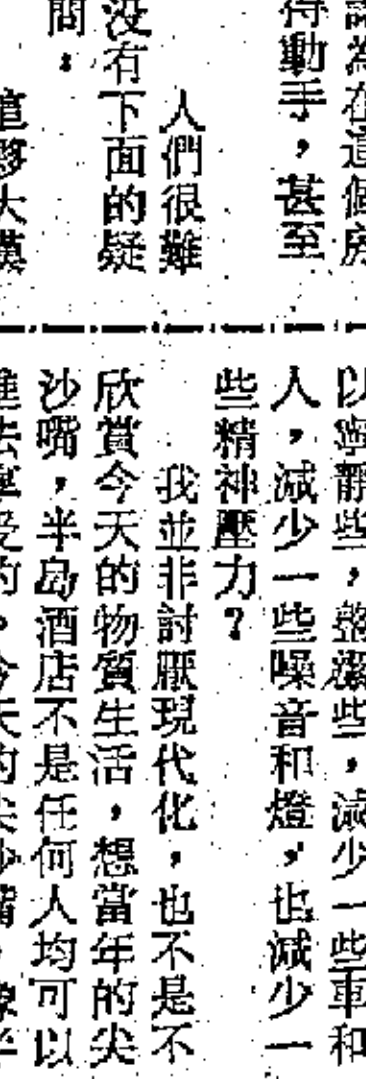 認為在這個房
得動手，甚至
人們很難
没有下面的疑
問：
以寧靜些，整潔些，減少一些車和
人，減少一些噪音和燈，也減少一
些精神壓力？
我並非討厭現代化，也不是不
欣賞今天的物質生活，想當年的尖
沙嘴，半島酒店不是任何人均可以
進去享受的。今天的尖沙嘴，像半